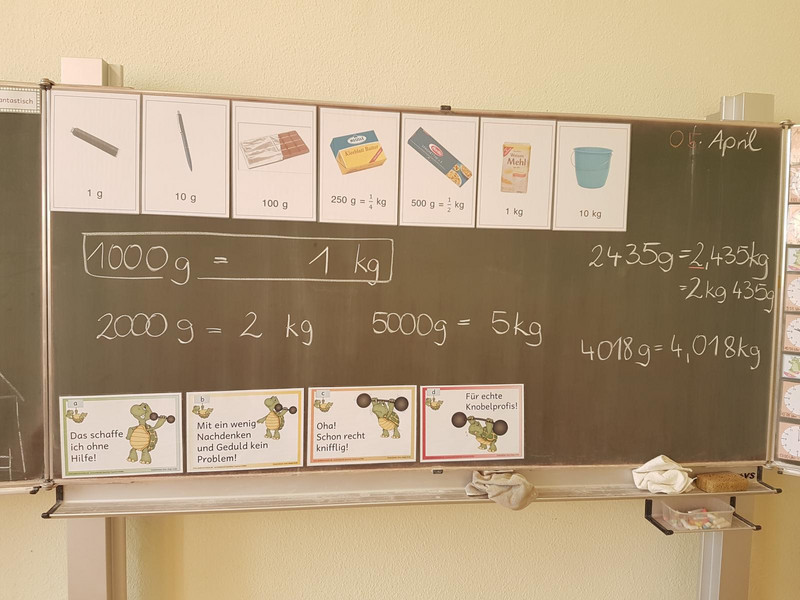 antastisch
1 g
10 g
100 g
250 g = 1/4 kg
500 g = 1/2 kg
Mehl
1 kg
10 kg
05. April
1000g = 1 kg
2000g = 2 kg
5000g = 5kg
2435g = 2,435kg
= 2kg 435g
4018g = 4,018kg
a
Das schaffe
ich ohne
Hilfe!
b
Mit ein wenig
Nachdenken
und Geduld kein
Problem!
c
Oha!
Schon recht
knifflig!
d
Für echte
Knobelprofis!